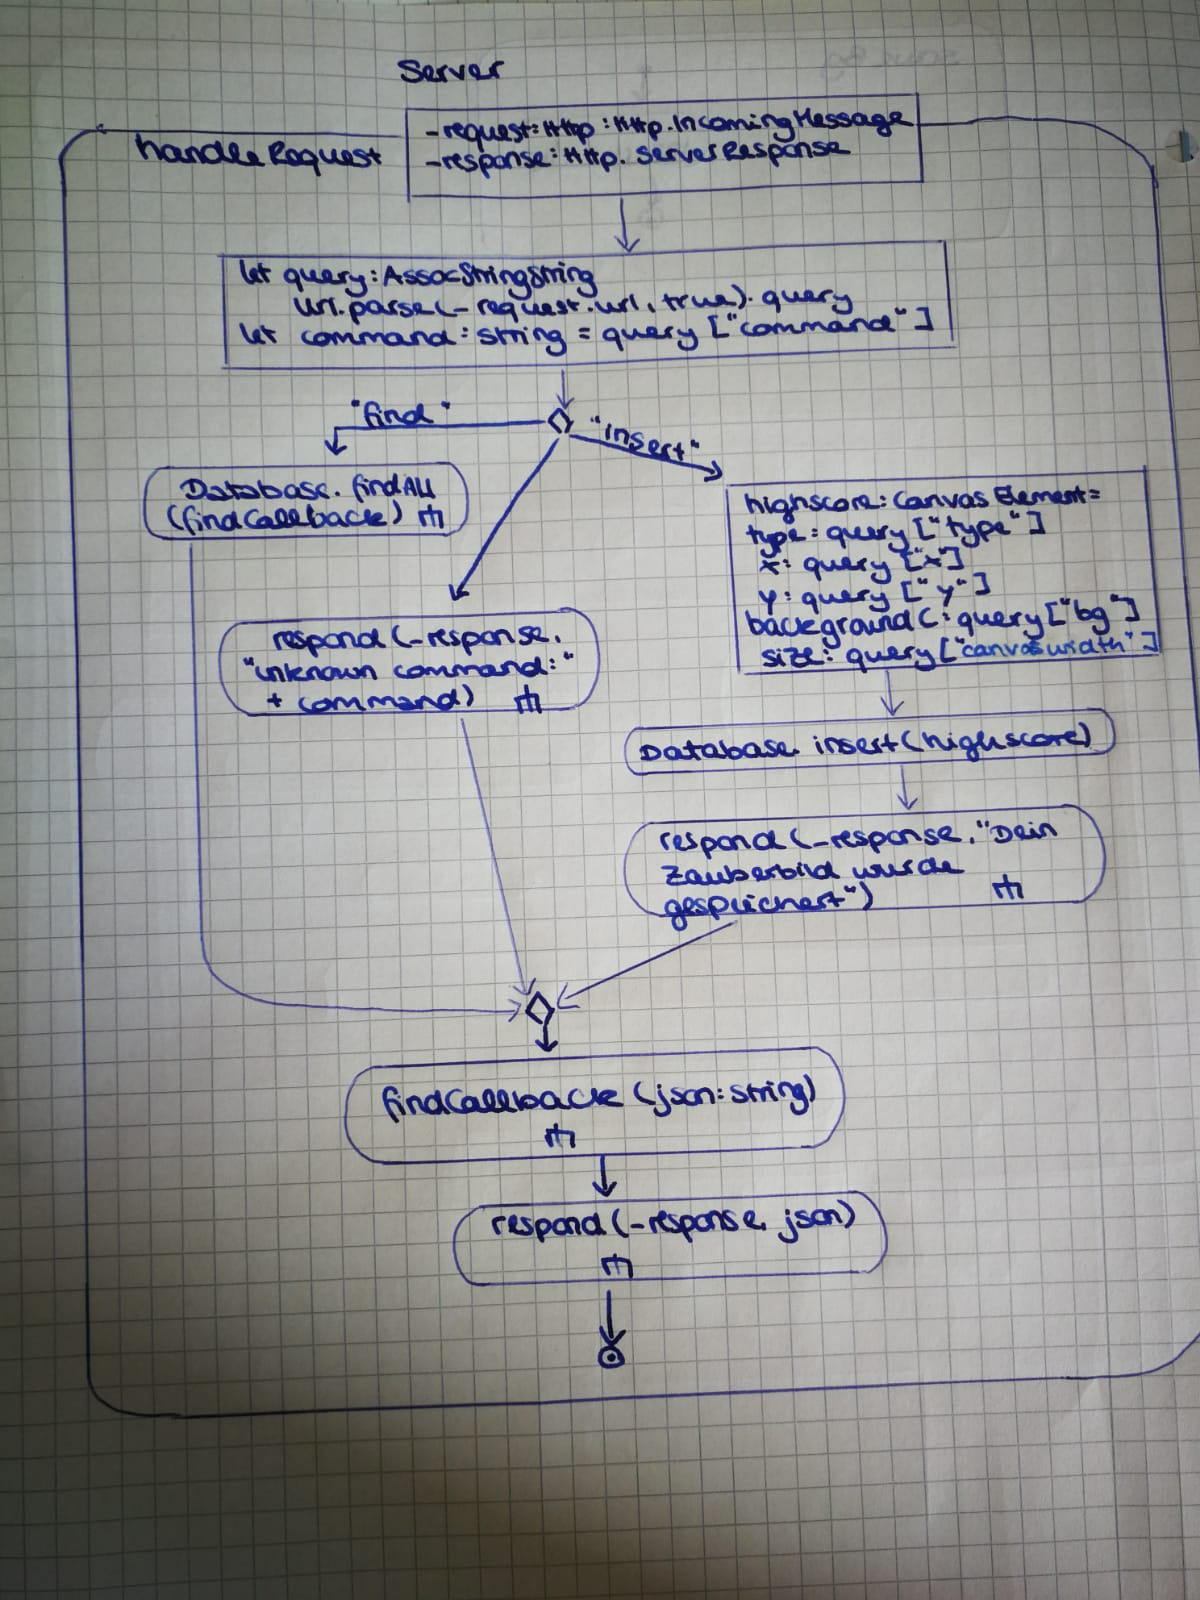 Server
handleRequest
-request:Http:Http.IncomingMessage
-response:Http.ServerResponse
let query:AssocStringString
Url.parse(-request.url, true).query
let command:string = query ["command"]
"find"
"insert"
Database.findAll
(findCallback)
highscore:CanvasElement=
type:query ["type"]
x: query ["x"]
y: query ["y"]
backgroundC:query ["bg"]
size: query ["canvaswidth"]
respond (-response,
"unknown command:"
+ command)
Database.insert(highscore)
respond (-response, "Dein
Zauberbild wurde
gespeichert")
findCallback (json:string)
respond (-response, json)